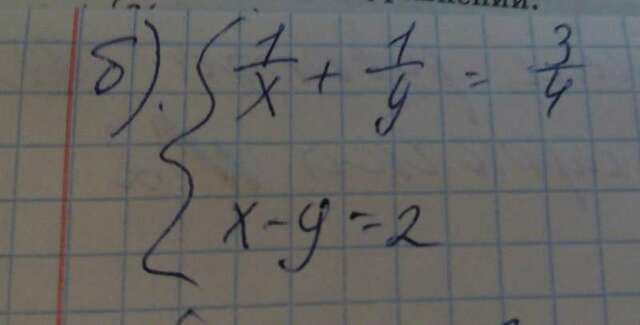 б). { 1/x + 1/y = 3/4
x - y = 2